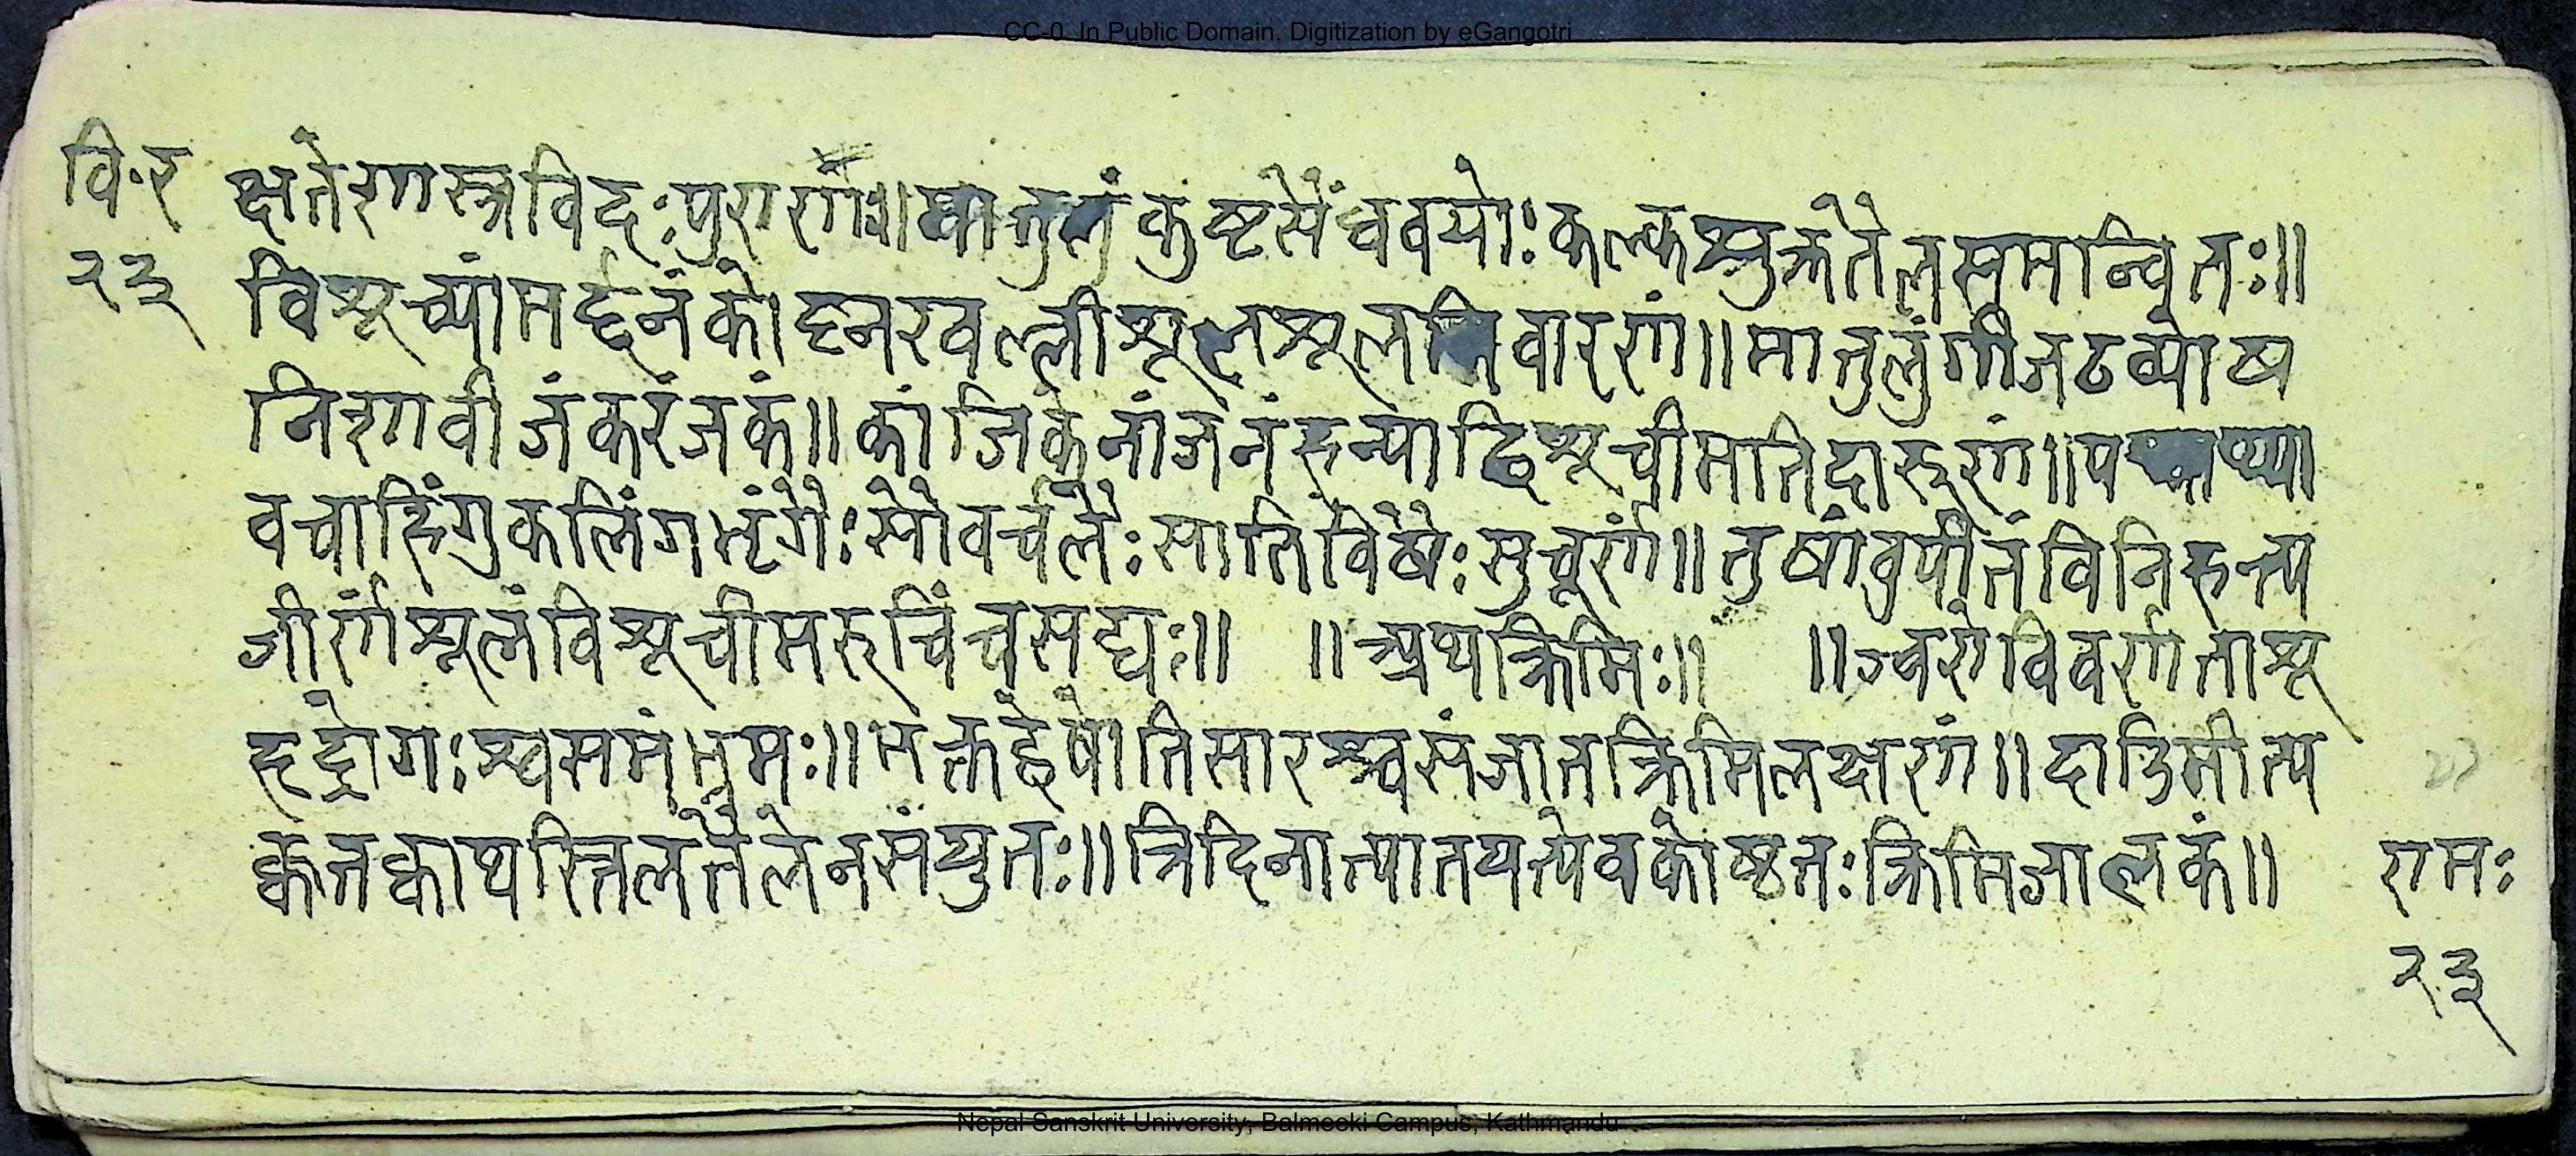 CC-0. In Public Domain. Digitization by eGangotri
वि·र क्षतेशास्त्रविदःपुराणैः॥ कुष्टसैंधवयोःकल्कश्चुक्रतैलसमान्वितः॥
२३ विशूच्यांमर्द्दनंकोष्टनखल्लीशूलशूलनिवारणं॥मातुलुंगीजटव्योष
निशावीजंकरंजकं॥कांजिकेनांजनंहन्याद्विशूचीमातिदारुणं॥
वचाहिंगुकलिंगभृंगैःसौवर्चलैःसातिविषैःसुचूर्णं॥तुषांवुपीतंविनिहन्त्य
जीर्णंशूलंविशूचीमरुचिंचसद्यः॥ ॥अथक्रिमिः॥ ॥ज्वरोविवर्णताशू
हृद्रोगःश्वसमंभ्रमः॥भक्तद्वेषोतिसारश्चसंजातक्रिमिलक्षणं॥दाडिमीत्व
क्कृतक्वाथस्तिलतैलेनसंयुतः॥त्रिदिनात्पातयत्येवकोष्टतःक्रिमिजालकं॥ रामः
२३
Nepal Sanskrit University, Balmeeki Campus, Kathmandu